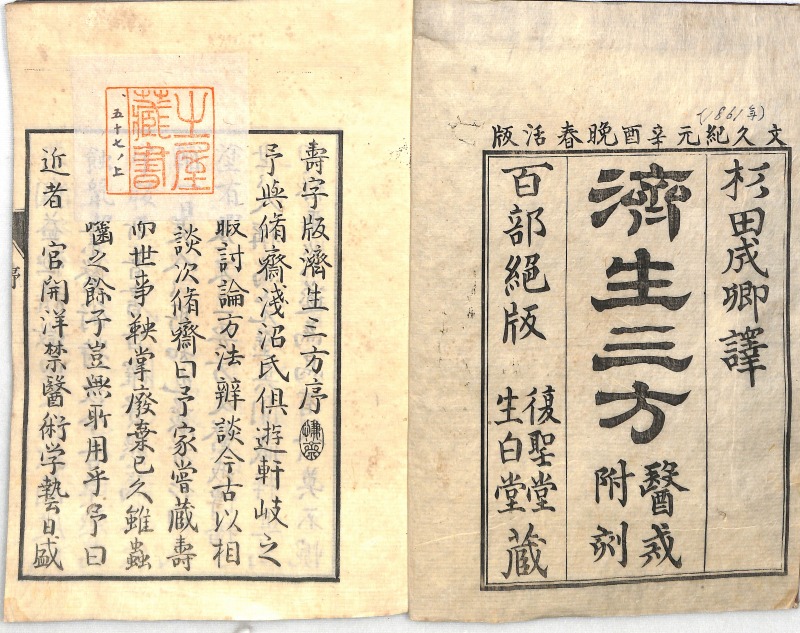 (1861年)
文久紀元辛酉晩春活版
杉田成卿譯
濟生三方
醫戒
附刻
百部絕版
復聖堂
生白堂
藏
土屋
藏書
五十七ノ上
壽字版濟生三方序
予與脩齋淺沼氏俱遊軒岐之
暇討論方法辨談今古以相
談次脩齋曰予家嘗藏壽
而世事鞅掌廢棄已久雖蟲
嚙之餘子豈無所用乎予曰
近者 官開洋禁醫術学藝日盛
序